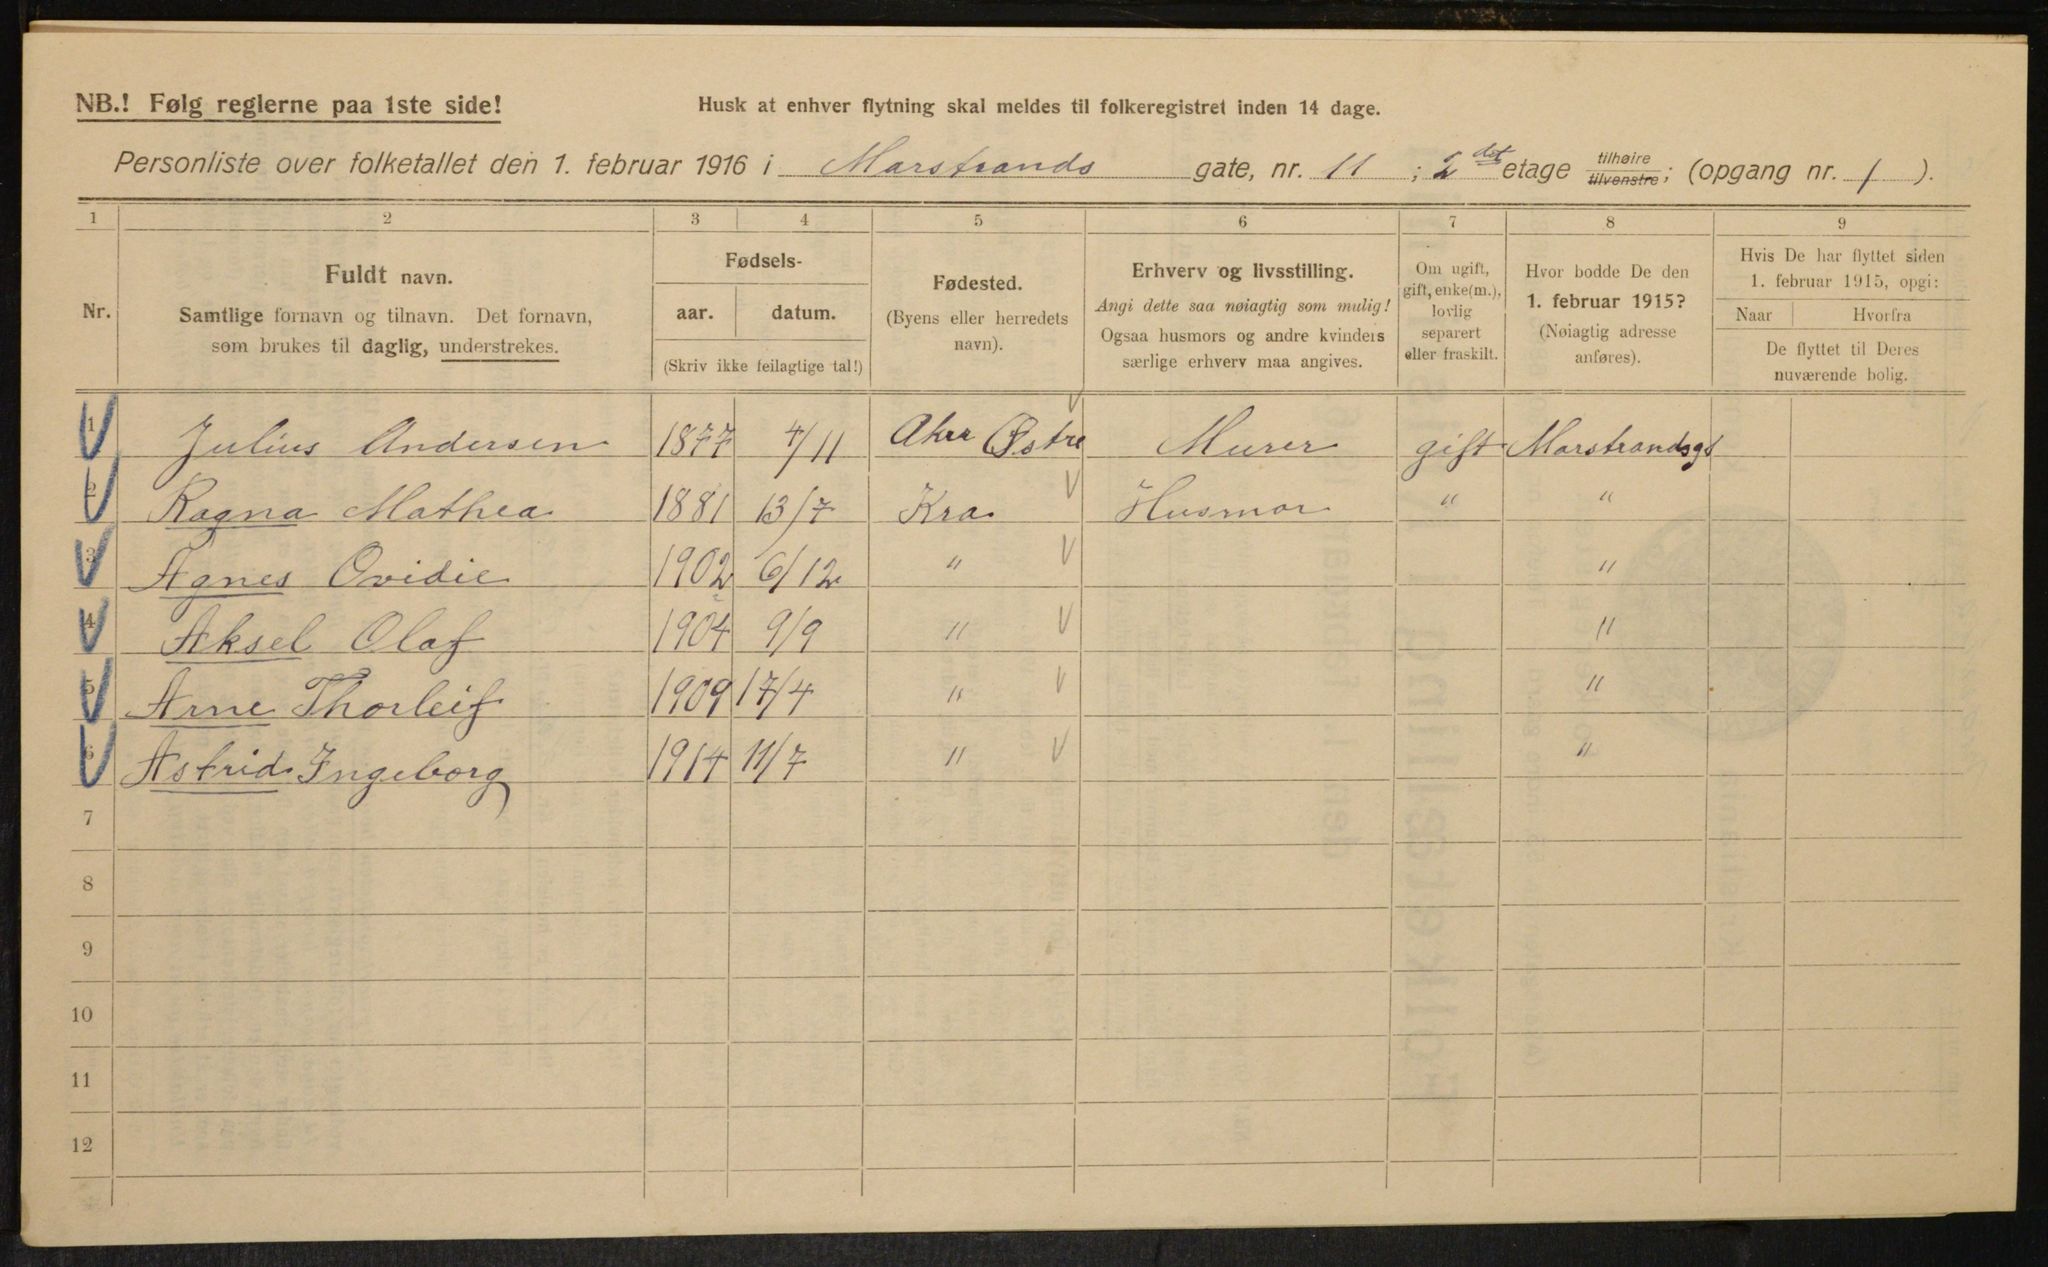 NB.! Følg reglerne paa 1ste side!
Husk at enhver flytning skal meldes til folkeregistret inden 14 dage.
Personliste over folketallet den 1. februar 1916 i Marstrands gate, nr. 11; 2 det etage tilhøire tilvenstre; (opgang nr. 1).
1 2 3 4 5 6 7 8 9
Nr.
Fuldt navn.
Samtlige fornavn og tilnavn. Det fornavn,
som brukes til daglig, understrekes.
Fødsels-
aar. datum.
(Skriv ikke feilagtige tal!)
Fødested.
(Byens eller herredets
navn).
Erhverv og livsstilling.
Angi dette saa nøiagtig som mulig!
Ogsaa husmors og andre kvinders
særlige erhverv maa angives.
Om ugift,
gift, enke(m.),
lovlig
separert
eller fraskilt.
Hvor bodde De den
1. februar 1915?
(Nøiagtig adresse
anføres).
Hvis De har flyttet siden
1. februar 1915, opgi:
Naar Hvorfra
De flyttet til Deres
nuværende bolig.
1 Julius Andersen 1877 4/11 Aker Østre Murer gift Marstrandsgt
2 Ragna Mathea 1881 13/7 Kra. Husmor " "
3 Agnes Ovidie 1902 6/12 " "
4 Aksel Olaf 1904 9/9 " "
5 Arne Thorleif 1909 17/4 " "
6 Astrid Ingeborg 1914 11/7 " "
7
8
9
10
11
12